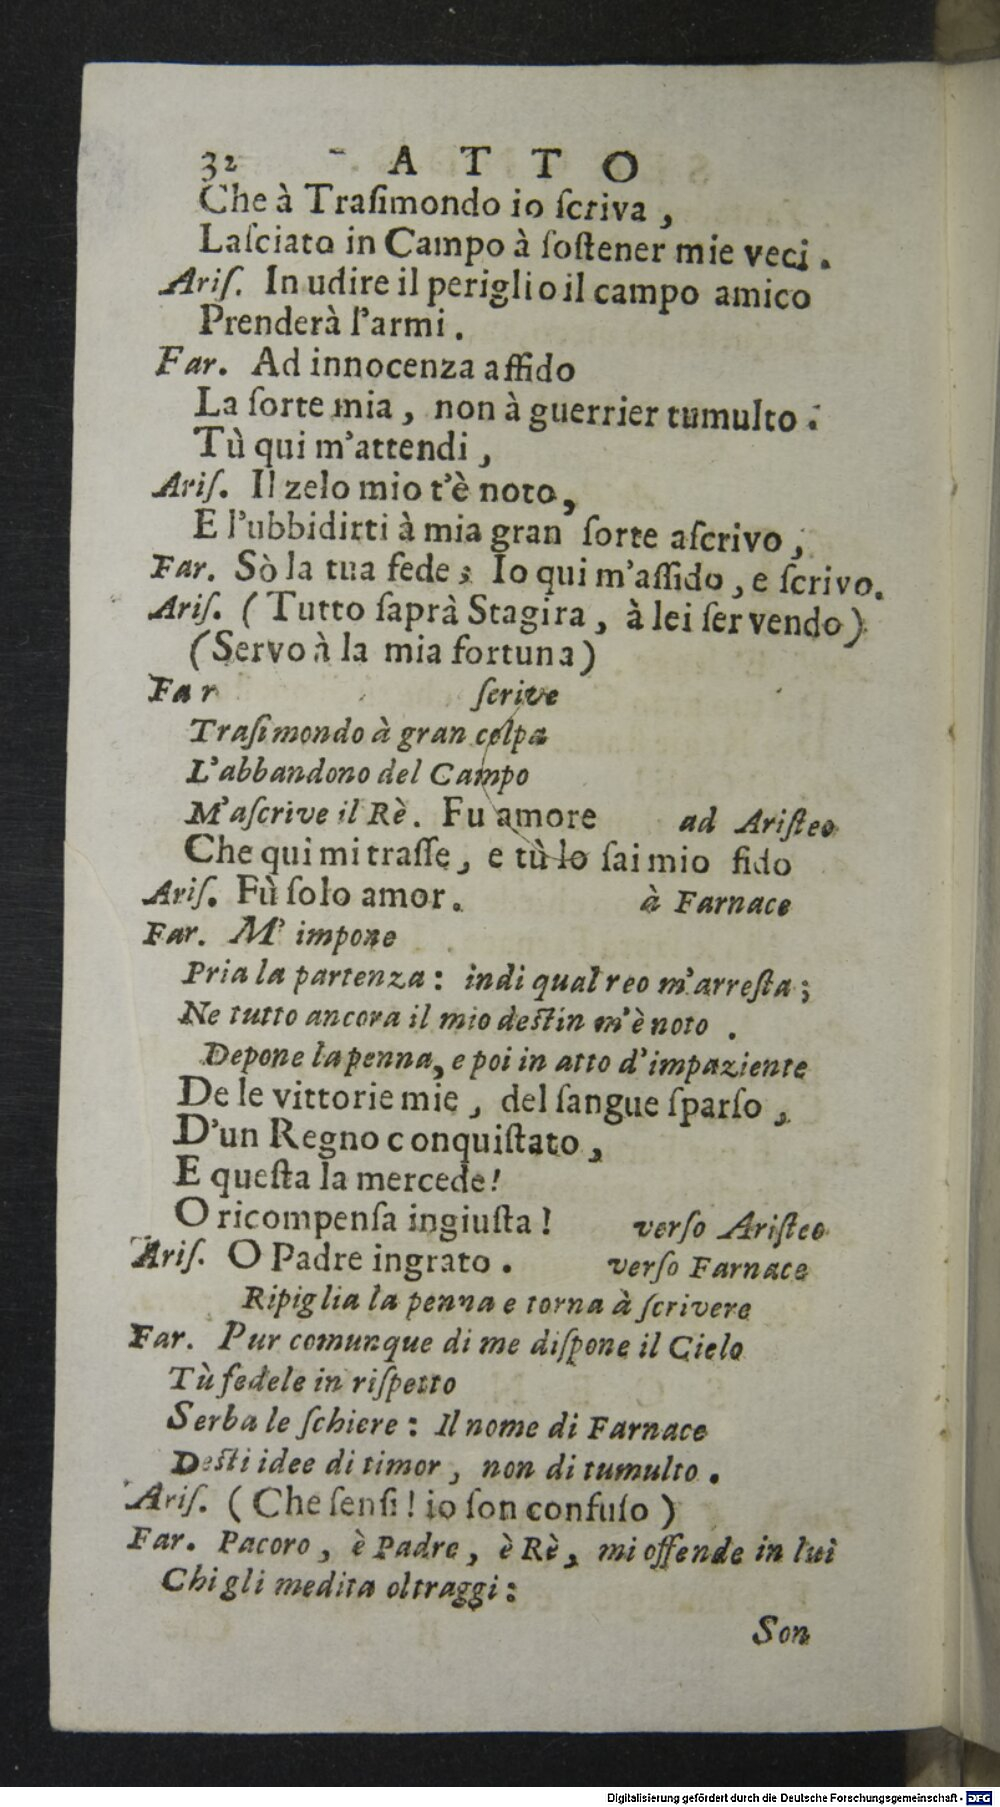 32 - A T T O
Che à Traſimondo io ſcriva ,
Laſciato in Campo à ſoſtener mie veci .
Ariſ. In udire il periglio il campo amico
Prenderà l'armi .
Far. Ad innocenza affido
La ſorte mia , non à guerrier tumulto .
Tù qui m'attendi ,
Ariſ. Il zelo mio t'è noto,
E l'ubbidirti à mia gran ſorte aſcrivo ,
Far. Sò la tua fede ; Io qui m'aſſido , e ſcrivo.
Ariſ. ( Tutto ſaprà Stagira , à lei ſervendo )
( Servo à la mia fortuna )
Far ſcrive
Traſimondo à gran colpa
L'abbandono del Campo
M'aſcrive il Rè . Fu amore ad Ariſteo
Che qui mi traſſe , e tù lo ſai mio fido
Ariſ. Fù ſolo amor . à Farnace
Far. M' impone
Pria la partenza : indi qual reo m'arreſta ;
Ne tutto ancora il mio deſtin m'è noto .
Depone la penna, e poi in atto d'impaziente
De le vittorie mie , del ſangue ſparſo ,
D'un Regno conquiſtato ,
E queſta la mercede !
O ricompenſa ingiuſta ! verſo Ariſteo
Ariſ. O Padre ingrato . verſo Farnace
Ripiglia la penna e torna à ſcrivere
Far. Pur comunque di me diſpone il Cielo
Tù fedele in riſpetto
Serba le ſchiere : Il nome di Farnace
Deſti idee di timor , non di tumulto .
Ariſ. ( Che ſenſi ! io ſon confuſo )
Far. Pacoro , è Padre , è Rè , mi offende in lui
Chi gli medita oltraggi :
Son
Digitalisierung gefördert durch die Deutsche Forschungsgemeinschaft - DFG